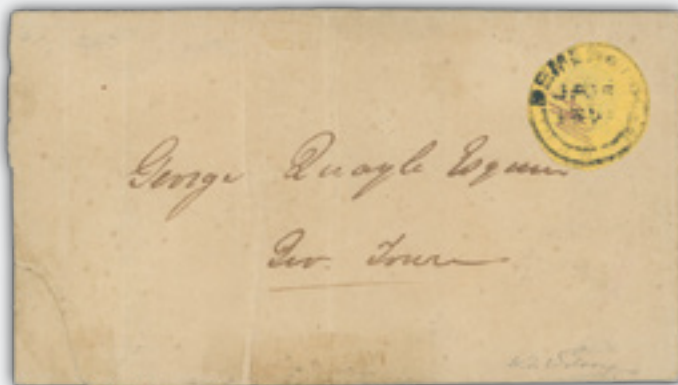 DEMERARA
George Quayle Esquire
Geo. Town